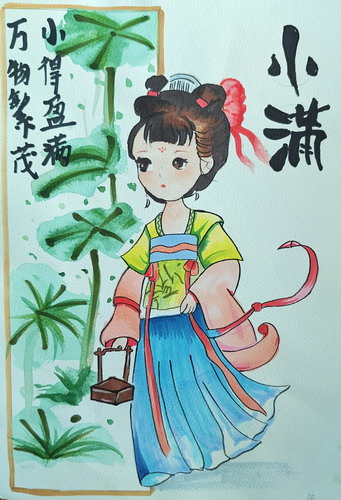 小满
小得盈满
万物繁茂